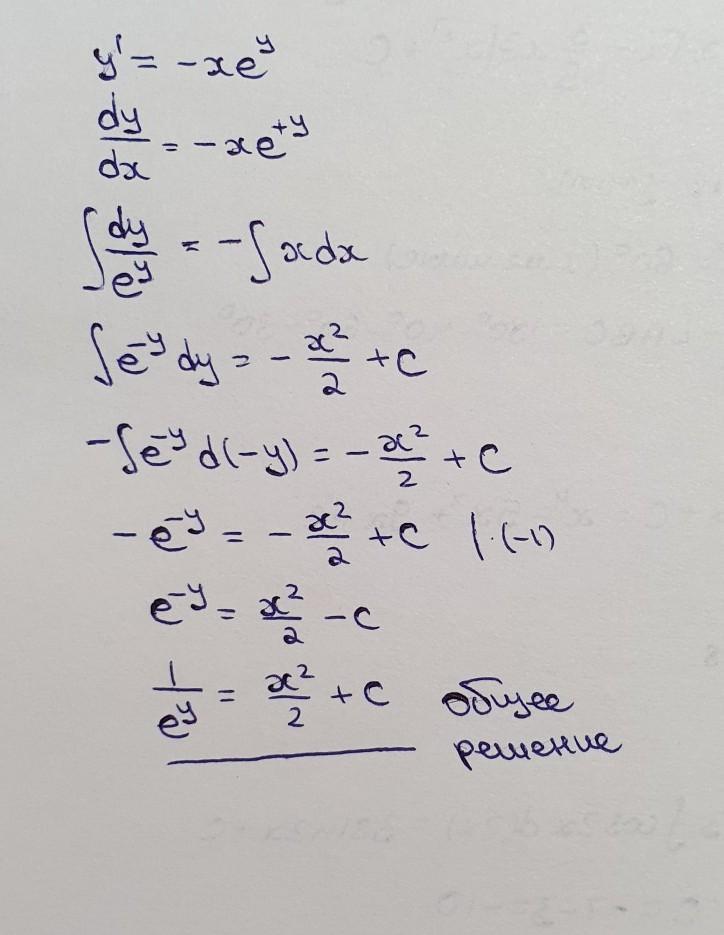 y' = -xe^y
dy/dx = -xe^{+y}
∫ dy/e^y = -∫ x dx
∫ e^{-y} dy = - x²/2 + C
-∫ e^{-y} d(-y) = - x²/2 + C
- e^{-y} = - x²/2 + C |·(-1)
e^{-y} = x²/2 - C
1/e^y = x²/2 + C общее
решение